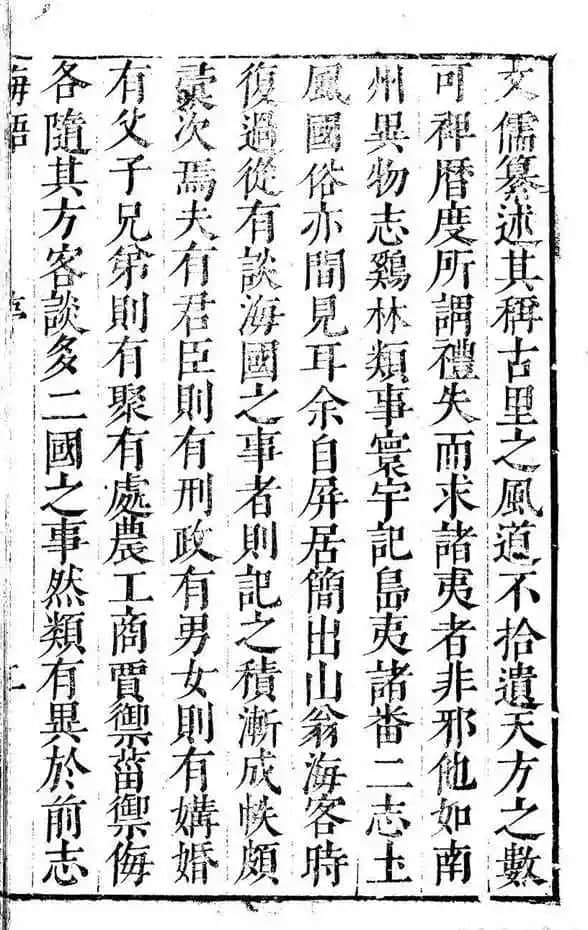 文儒纂述其稱古里之風道不拾遺天方之數
可裨曆度所謂禮失而求諸夷者非邪他如南
州異物志鷄林類事寰宇記島夷諸畨二志土
風國俗亦間見耳余自屏居簡出山翁海客時
復過從有談海國之事者則記之積漸成帙頗
彚次焉夫有君臣則有刑政有男女則有媾婚
有父子兄弟則有聚有處農工商賈禦菑禦侮
各隨其方客談多二國之事然類有異於前志
海語
序
二